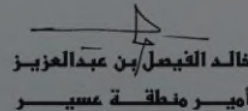 خالد الفيصل بن عبدالعزيز
أمير منطقة عسير